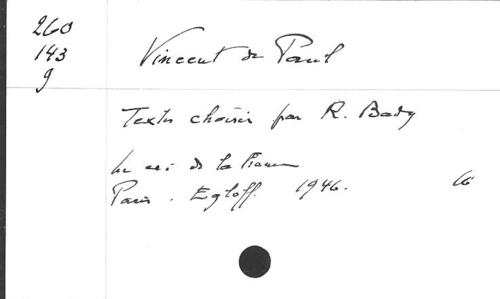 260
143
g
Vincent de Paul
Textes choisis par R. Bady
Le cri de la France
Paris. Egloff. 1946.